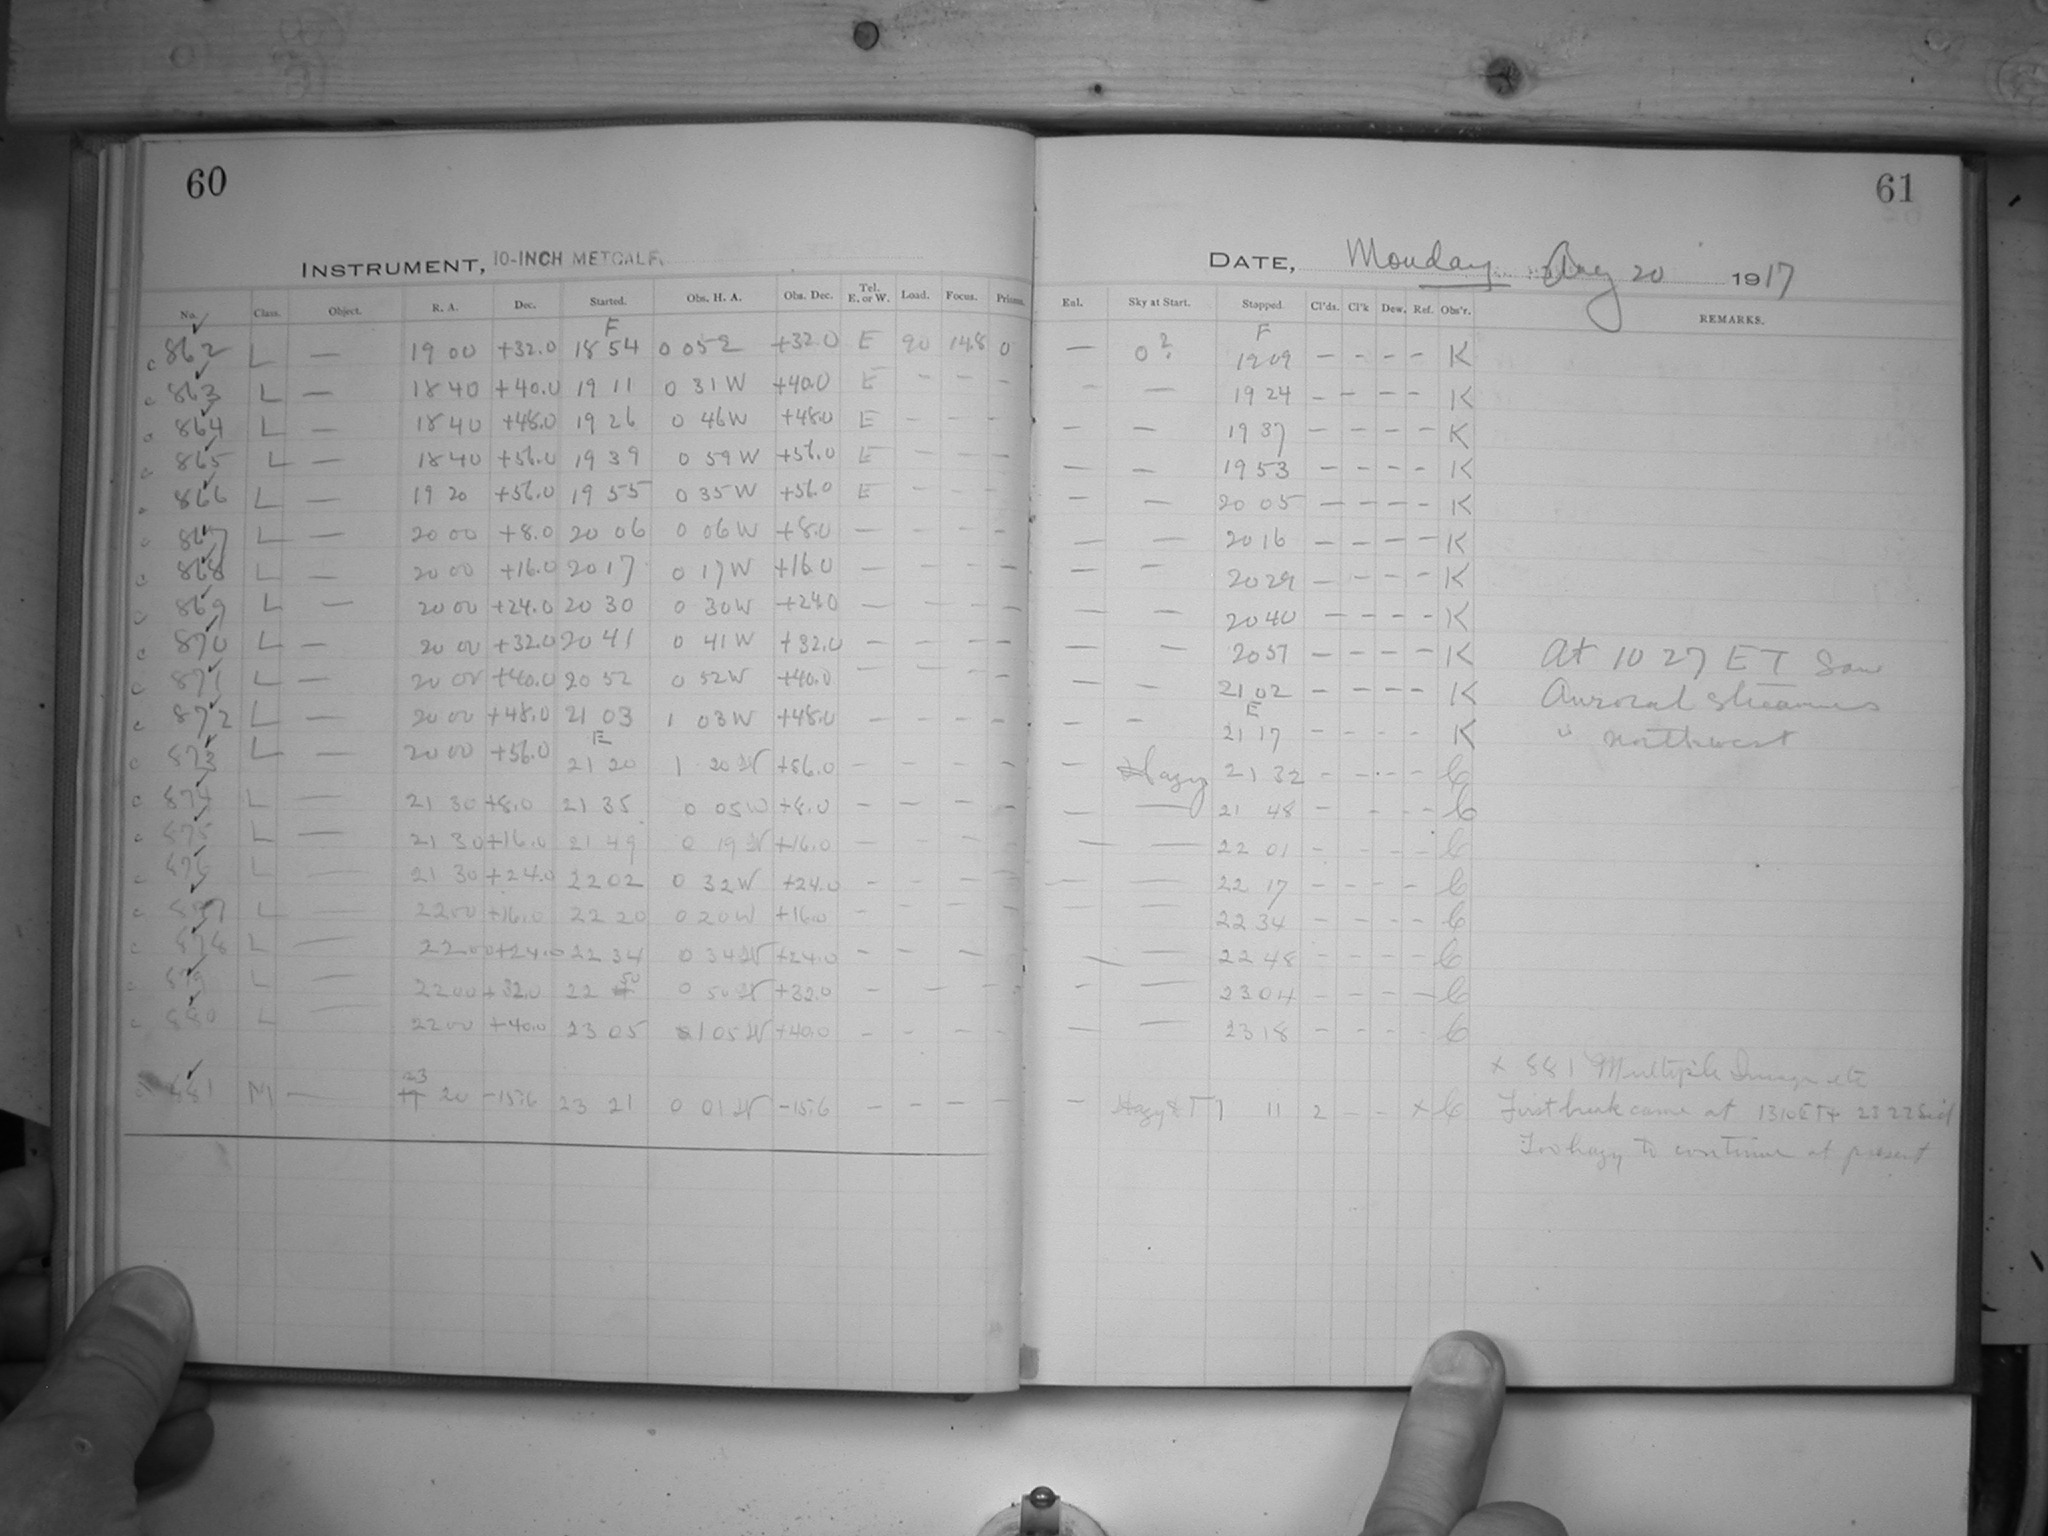 60
INSTRUMENT, 10-INCH METCALF.
No. Class. Object. R. A. Dec. Started. Obs. H. A. Obs. Dec. Tel. E. or W. Load. Focus. Prisms.
862 L — 19 00 +32.0 F 18 54 0 05 +32.0 E 90 14.8 0
863 L — 18 40 +40.0 19 11 0 31 W +40.0 E – – –
864 L — 18 40 +48.0 19 26 0 46 W +48.0 E – – –
865 L — 18 40 +56.0 19 39 0 59 W +56.0 E – – –
866 L — 19 20 +56.0 19 55 0 35 W +56.0 E – – –
867 L — 20 00 +8.0 20 06 0 06 W +8.0 – – – –
868 L — 20 00 +16.0 20 17 0 17 W +16.0 – – – –
869 L — 20 00 +24.0 20 30 0 30 W +24.0 – – – –
870 L — 20 00 +32.0 20 41 0 41 W +32.0 – – – –
871 L — 20 00 +40.0 20 52 0 52 W +40.0 – – – –
872 L — 20 00 +48.0 21 03 1 03 W +48.0 – – – –
873 L — 20 00 +56.0 E 21 20 1 20 W +56.0 – – – –
874 L — 21 30 +8.0 21 35 0 05 W +8.0 – – – –
875 L — 21 30 +16.0 21 49 0 19 W +16.0 – – – –
876 L — 21 30 +24.0 22 02 0 32 W +24.0 – – – –
877 L — 22 00 +16.0 22 20 0 20 W +16.0 – – – –
878 L — 22 00 +24.0 22 34 0 34 W +24.0 – – – –
879 L — 22 00 +32.0 22 50 0 50 W +32.0 – – – –
880 L — 22 00 +40.0 23 05 1 05 W +40.0 – – – –
881 M — 23 20 -15.6 23 21 0 01 W -15.6 – – – –
61
DATE, Monday Aug 20 1917
Enl. Sky at Start. Stopped. Cl'ds. Cl'k Dew. Ref. Obs'r. REMARKS.
— 0? F 19 09 – – – – K
— — 19 24 – – – – K
— — 19 37 – – – – K
— — 19 53 – – – – K
— — 20 05 – – – – K
— — 20 16 – – – – K
— — 20 29 – – – – K
— — 20 40 – – – – K
— — 20 51 – – – – K At 10 27 ET Saw
— — 21 02 – – – – K Auroral Streamers
— — E 21 17 – – – – K in northwest
— Hazy 21 32 – – – – C
— — 21 48 – – – – C
— — 22 01 – – – – C
— — 22 17 – – – – C
— — 22 34 – – – – C
— — 22 48 – – – – C
— — 23 04 – – – – C
— — 23 18 – – – – C
x 881 Multiple Images etc
— Hazy & 11 2 – – x C First break came at 1310 ET 23 22 Sid
Too hazy to continue at present